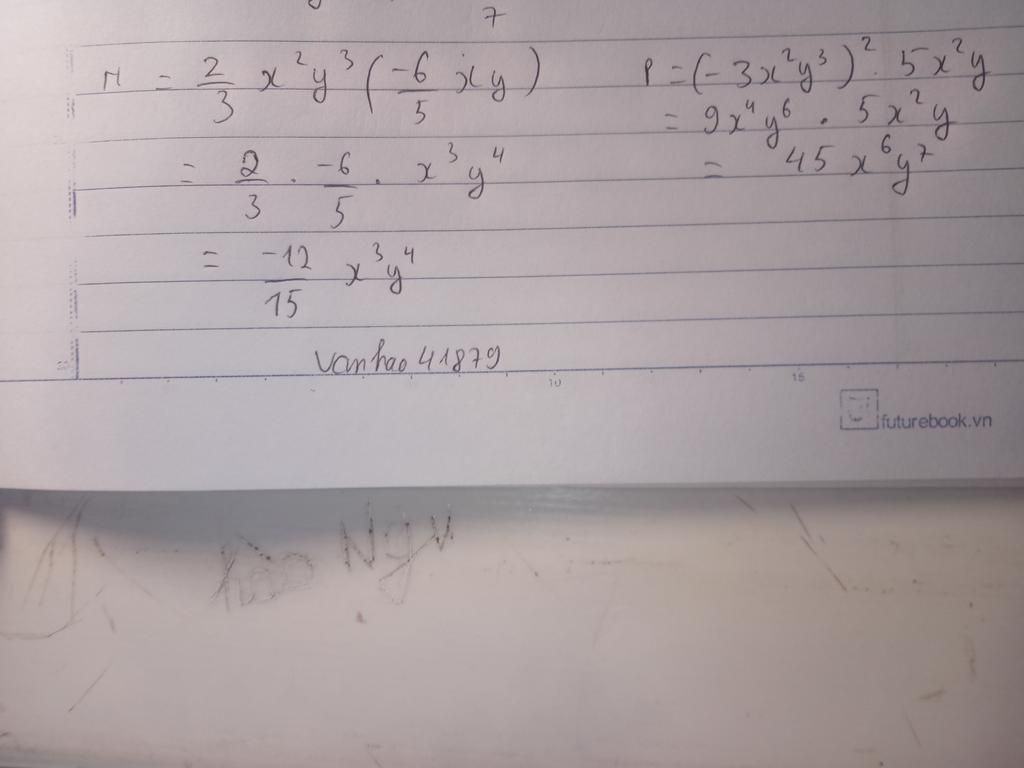 7
M = 2/3 x²y³ (-6/5 xy)
= 2/3 . -6/5 . x³y⁴
= -12/15 x³y⁴
P = (-3x²y³)² . 5x²y
= 9x⁴y⁶ . 5x²y
= 45x⁶y⁷
Vanhao 41879
10 15
futurebook.vn
hào Ngu